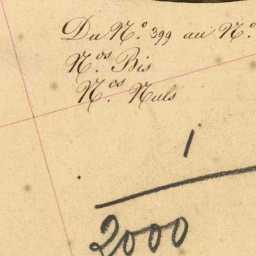 Du N.º 399 au N.º
N.os Bis
N.os Nuls
1
2000